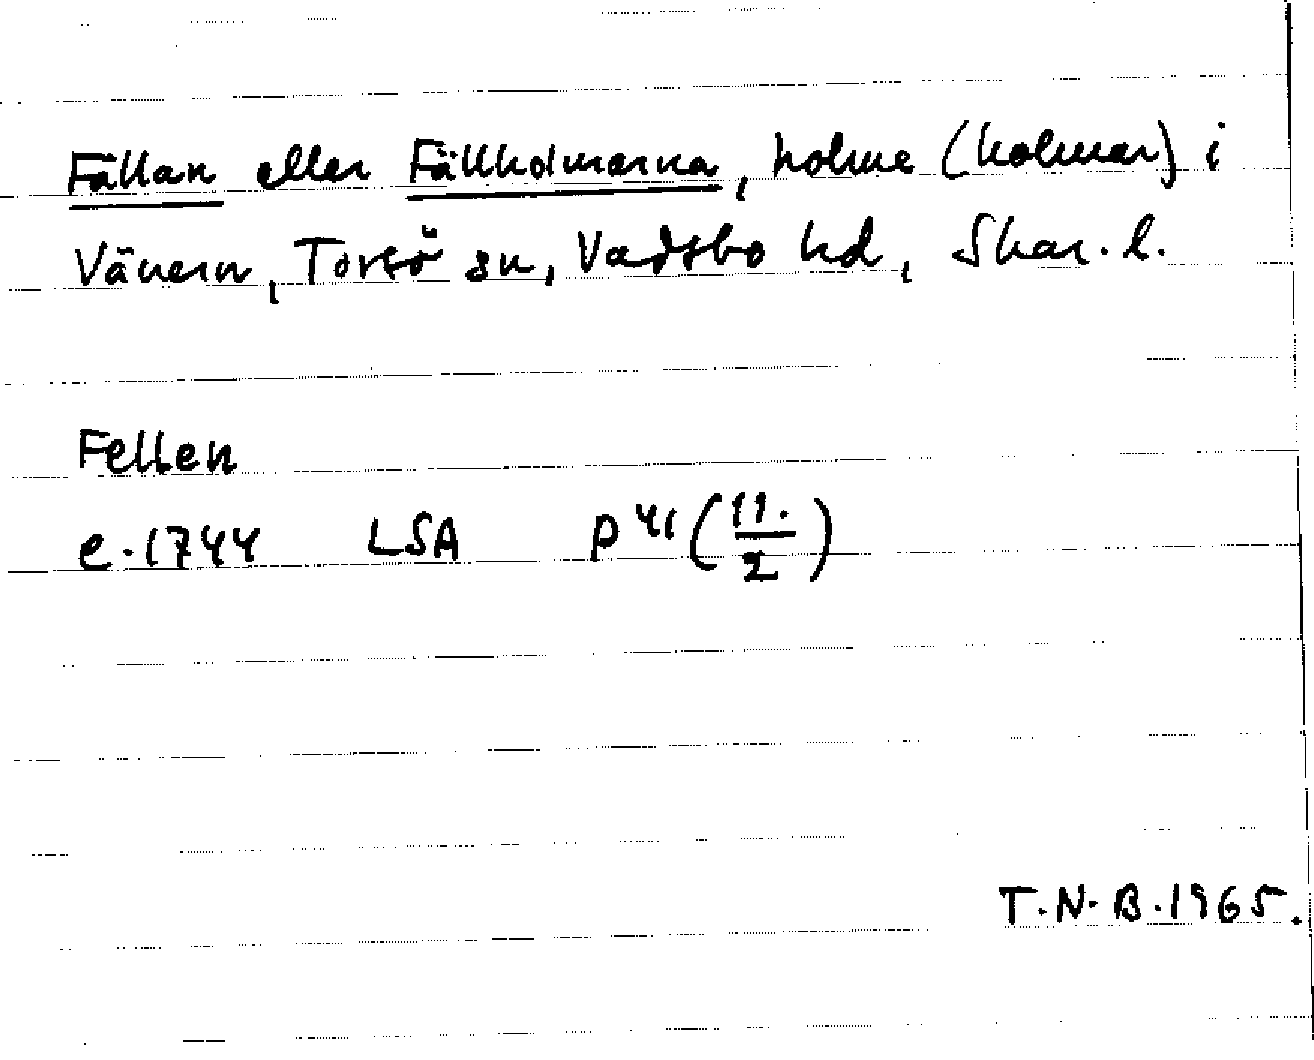 Fällan eller Fällholmarna, holme (holmar) i
Vänern, Torsö sn, Vadsbo hd, Skar. l.
Fellen
e. 1744 LSA P 41 (11./2)
T.N.B. 1965.